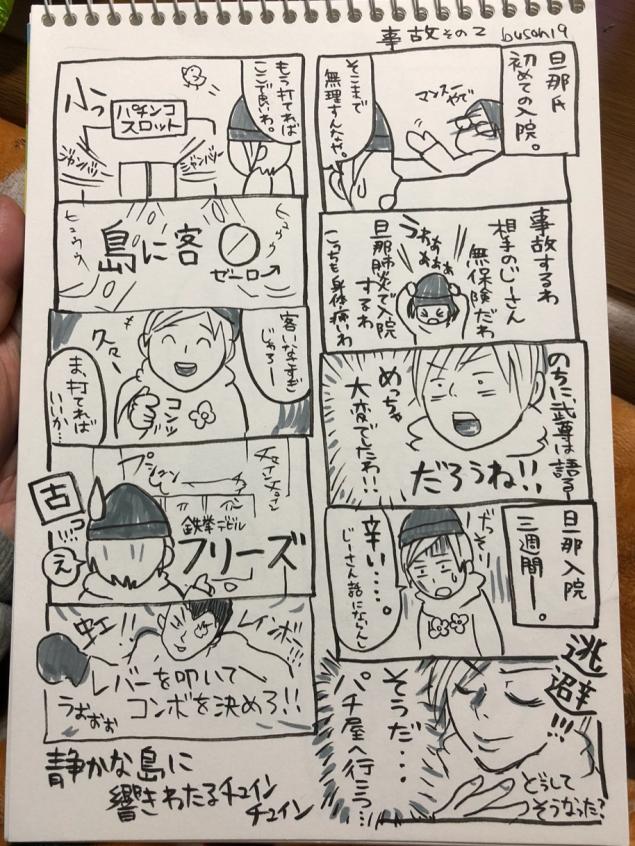 事故その2 buson19
旦那氏
初めての入院。
マンスーやで
そこまで
無理すんなや。
事故するわ
相手のじーさん
無保険だわ
旦那肺炎で入院
するわ
こっちも身体痛いわ
うおぉぉぉぉ
のちに武尊は語る
めっちゃ
大変でしたわ!!
だろうね!!
旦那入院
三週間ー。
げっそり
辛い・・・。
じーさん話にならんし
逃避!!!
そうだ・・・
パチ屋へ行こう・・・
どうして
そうなった?
もう打てれば
ここで良いわ。
小っ
パチンコ
スロット
ジャンバリ
ジャンバリ
ヒュウウウ
島に客
ゼーロ→
ヒュウウウ
客いなすぎ
じゃろー
久々〜
コンッ
ま、打てれば
いいか…
プシュン
古っ!!!
え
鉄拳デビル
フリーズ
虹!!
レインボー
レバーを叩いて
コンボを決めろ!!
うおぉぉ
静かな島に
響きわたるチュイン
チュイン